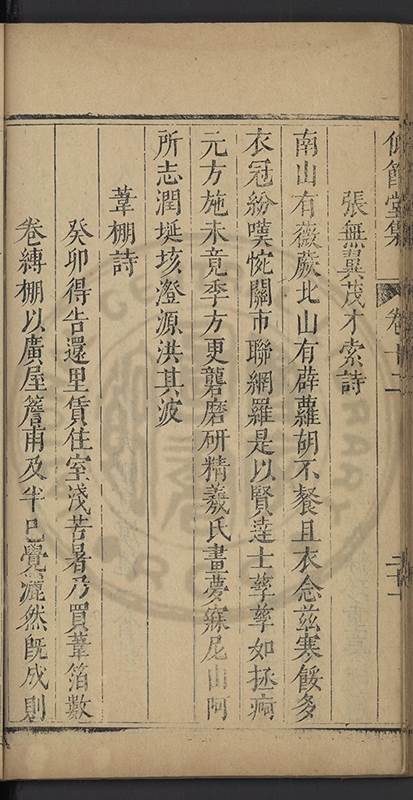 仰節堂集 卷十二
張無翼茂才索詩
南山有薇蕨北山有薜蘿胡不餐且衣念茲寒餒多
衣冠紛嘆惋關市聯網羅是以賢達士孳孳如拯痾
元方施未竟季方更礱磨研精羲氏畫夢寐尼山阿
所志潤埏垓澄源洪其波
葦棚詩
癸卯得告還里賃住室淺苦暑乃買葦箔數
卷縛棚以廣屋簷甫及半已覺灑然既成則